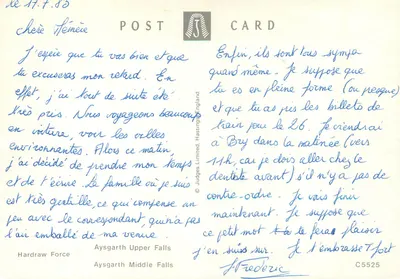 le 11.7.83
POST CARD
chère Mémère
J'espère que tu vas bien et que
tu excuseras mon retard. En
effet, j'ai tout de suite été
très pris. Nous voyageons beaucoup
en voiture, voir les villes
environnantes. Alors ce matin,
j'ai décidé de prendre mon temps
et de t'écrire. La famille où je suis
est très gentille, ce qui compense un
peu avec le correspondant, qui n'a pas
l'air emballé de ma venue.
Enfin, ils sont tous sympa
quand même. Je suppose que
tu es en pleine forme (ou presque)
et que tu as pris les billets de
train pour le 26. Je viendrai
à Bry dans la matinée (vers
11h, car je dois aller chez le
dentiste avant) s'il n'y a pas de
contre-ordre. Je vais finir
maintenant. Je suppose que
ce petit mot te feras plaisir
j'en suis sûr. Je t'embrasse fort
Frédéric
© Judges Limited, Hastings, England
Hardraw Force
Aysgarth Upper Falls
Aysgarth Middle Falls
C5525